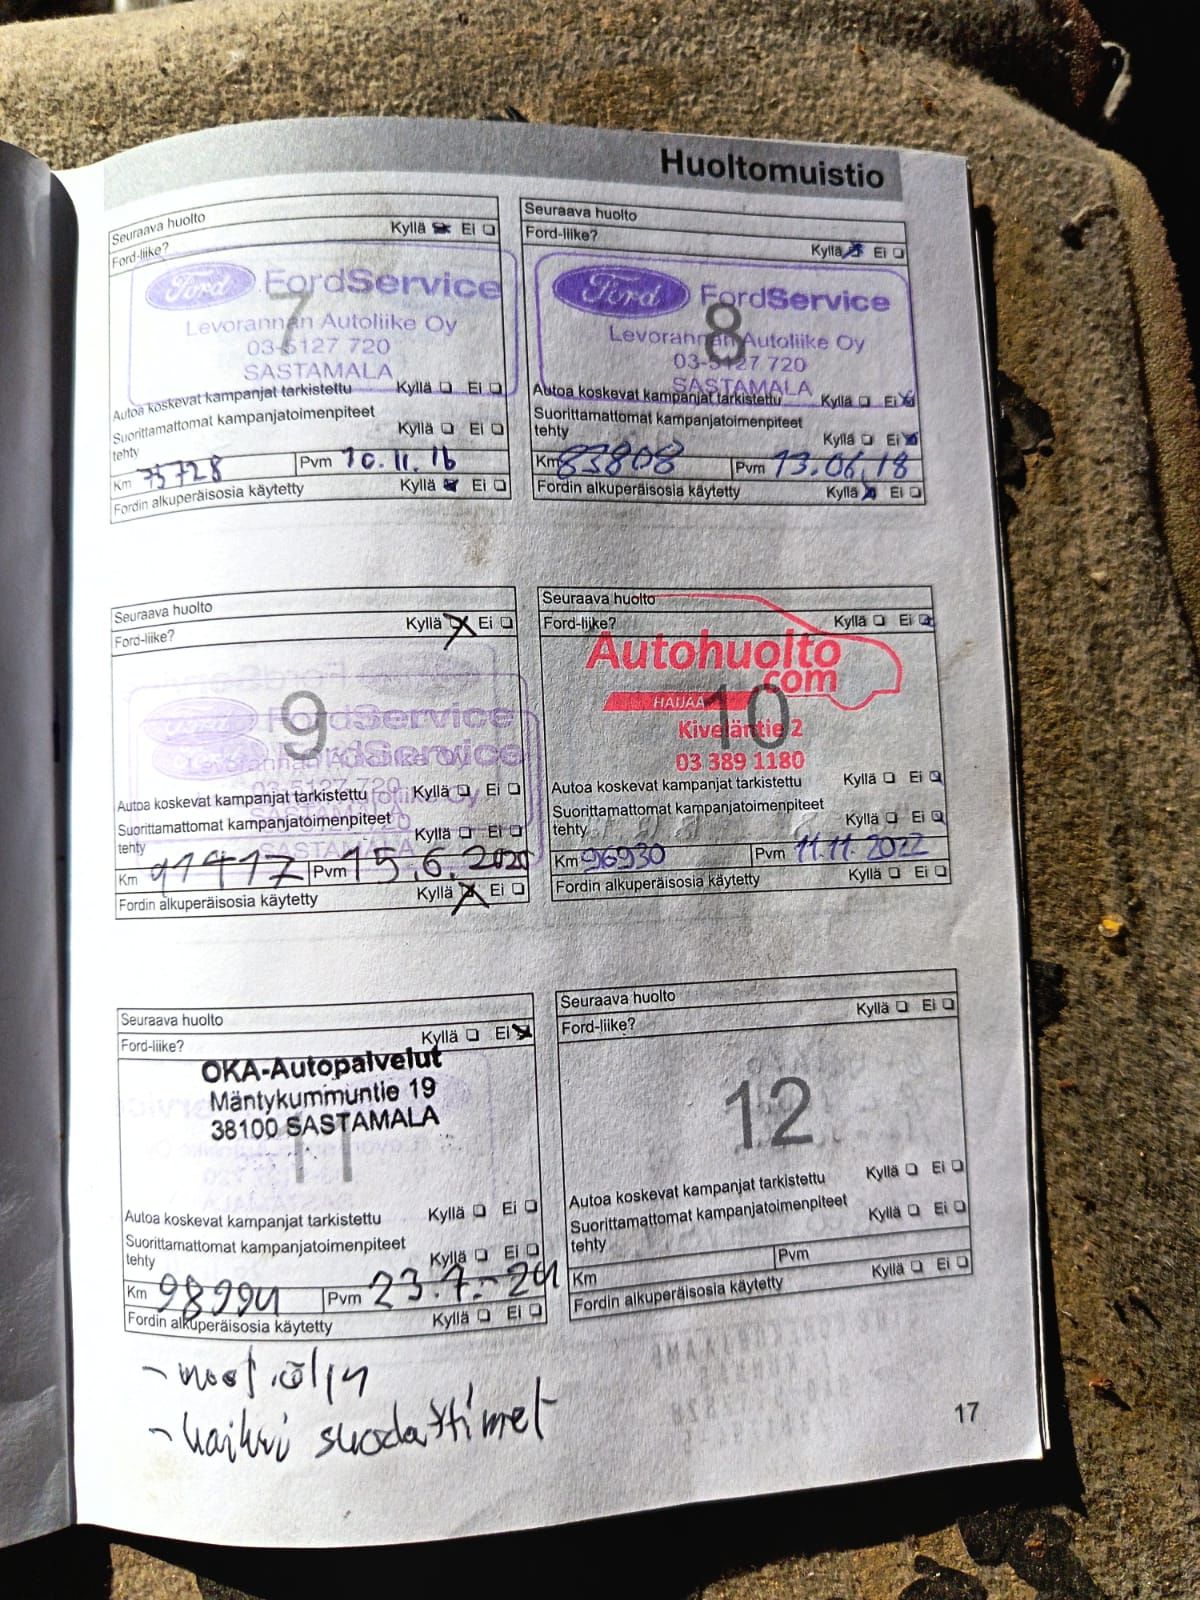 Huoltomuistio
Seuraava huolto
Ford-liike? Kyllä Ei
Ford FordService
7
Levorannan Autoliike Oy
03-5127 720
SASTAMALA
Autoa koskevat kampanjat tarkistettu Kyllä Ei
Suorittamattomat kampanjatoimenpiteet
tehty Kyllä Ei
Km 75728 Pvm 10.11.16
Fordin alkuperäisosia käytetty Kyllä Ei
Seuraava huolto
Ford-liike? Kyllä Ei
Ford FordService
8
Levorannan Autoliike Oy
03-5127 720
SASTAMALA
Autoa koskevat kampanjat tarkistettu Kyllä Ei
Suorittamattomat kampanjatoimenpiteet
tehty Kyllä Ei
Km 83808 Pvm 13.06.18
Fordin alkuperäisosia käytetty Kyllä Ei
Seuraava huolto
Ford-liike? Kyllä Ei
9
FordService
FordService
03-5127 720
Autoa koskevat kampanjat tarkistettu Kyllä Ei
Suorittamattomat kampanjatoimenpiteet
tehty Kyllä Ei
Km 91417 Pvm 15.6.2020
Fordin alkuperäisosia käytetty Kyllä Ei
Seuraava huolto
Ford-liike? Kyllä Ei
Autohuolto
.com
HAIJAA
10
Kiveläntie 2
03 389 1180
Autoa koskevat kampanjat tarkistettu Kyllä Ei
Suorittamattomat kampanjatoimenpiteet
tehty Kyllä Ei
Km 96930 Pvm 11.11.2022
Fordin alkuperäisosia käytetty Kyllä Ei
Seuraava huolto
Ford-liike? Kyllä Ei
OKA-Autopalvelut
Mäntykummuntie 19
38100 SASTAMALA
11
Autoa koskevat kampanjat tarkistettu Kyllä Ei
Suorittamattomat kampanjatoimenpiteet
tehty Kyllä Ei
Km 98994 Pvm 23.7.-24
Fordin alkuperäisosia käytetty Kyllä Ei
Seuraava huolto
Ford-liike? Kyllä Ei
12
Autoa koskevat kampanjat tarkistettu Kyllä Ei
Suorittamattomat kampanjatoimenpiteet
tehty Kyllä Ei
Km Pvm
Fordin alkuperäisosia käytetty Kyllä Ei
- moot.öljy
- kaikki suodattimet
17